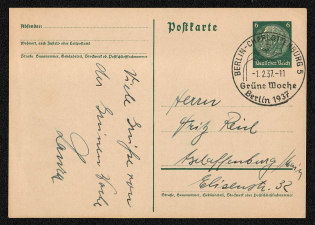 Absender:
Wohnort, auch Zustell- oder Leitpostamt
Straße, Hausnummer, Gebäudeteil, Stockwerk oder Postschließfachnummer
Viele Grüße von
der Grünen Woche
Postkarte
6 6
Deutsches Reich
BERLIN-CHARLOTTENBURG 5
-1.2.37.-11
Grüne Woche
Berlin 1937
Herrn
Fritz Reil
Aschaffenburg
Elisenstr. 32
Straße, Hausnummer, Gebäudeteil, Stockwerk oder Postschließfachnummer